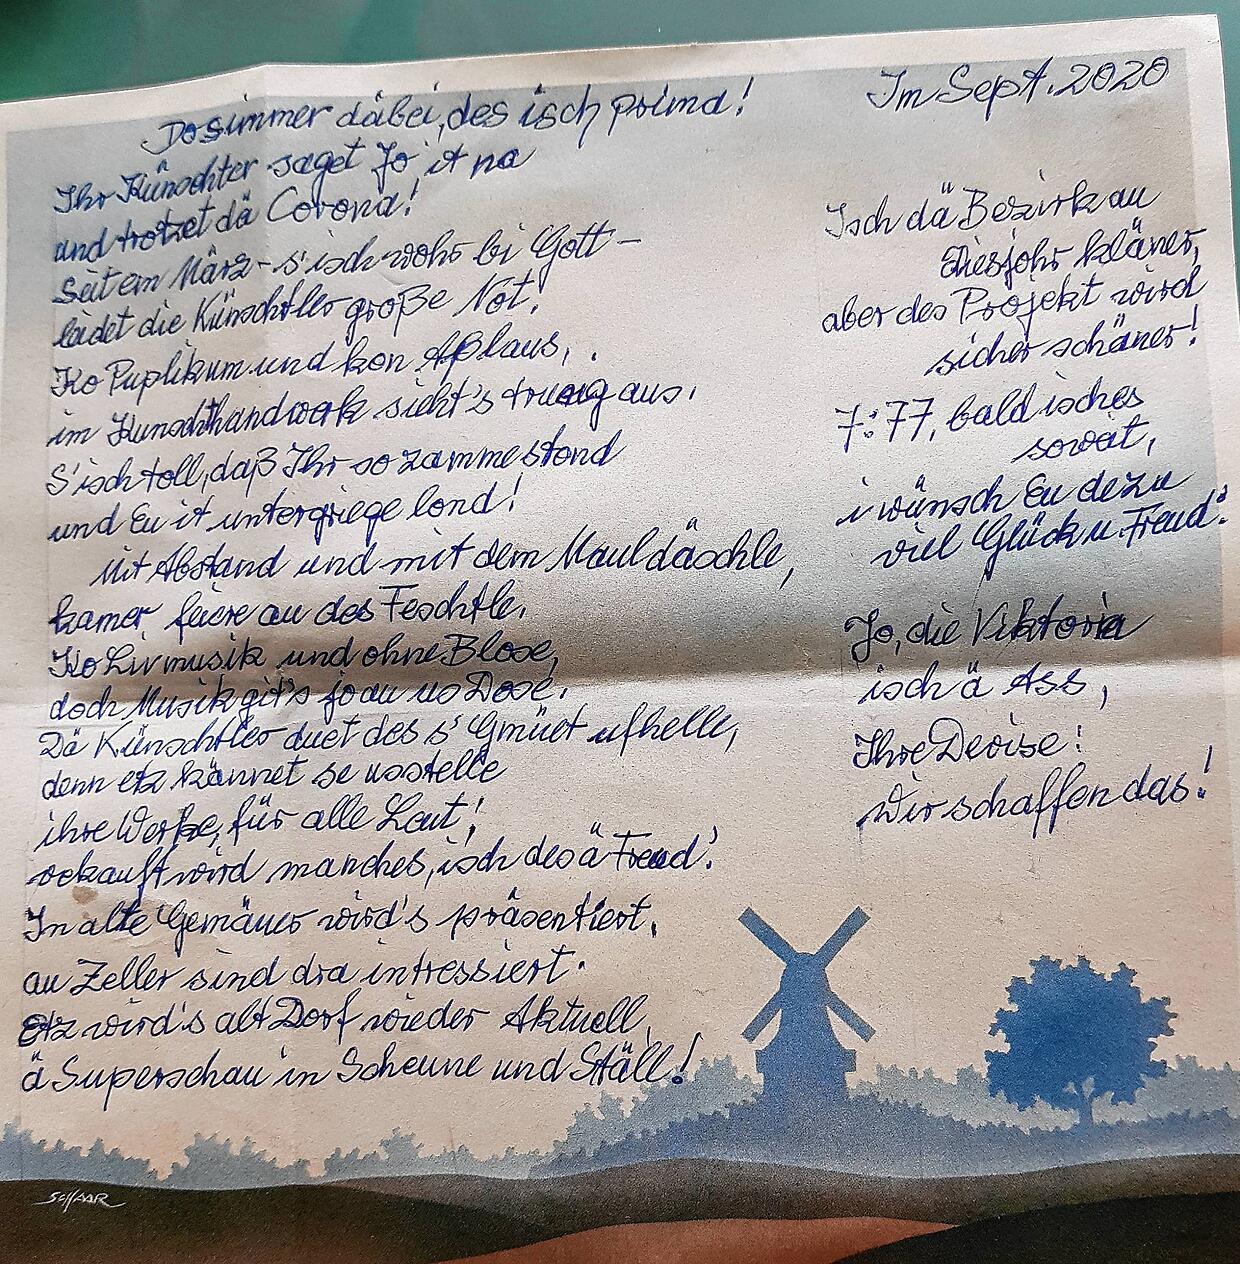 Im Sept. 2020
Do simmer däbei, des isch prima!
Ihr Künschter saget Jo it na
und trotzet dä Corona!
Seit em März - s'isch wohr bi Gott -
leidet die Künschtler große Not!
Ko Puplikum und kon Aplaus,
im Kunschthandwerk sieht's traurig aus.
S'isch toll, daß Ihr so zammestond
und Eu it untergriege lond!
Mit Abstand und mit dem Mauldäschle,
kamer feiere au des Feschtle.
Ko Livmusik und ohne Blose,
doch Musik git's jo au us Dose.
Dä Künschtler duet des s'Gmüet ufhelle,
denn etz kännet se usstelle
ihre Werke, für alle Leut!
vekauft wird manches, isch des ä Freud!
In alte Gemäuer wird's präsentiert.
au Zeller sind dra intressiert.
Etz wird's alt Dorf wieder Aktuell,
ä Superschau in Scheune und Ställ!
Isch dä Bezirk au
diesjohr kläner,
aber des Projekt wird
sicher schäner!
7:77, bald isches
soweit,
i wünsch Eu dezu
viel Glück u. Freud!
Jo, die Viktoria
isch ä Ass,
Ihre Devise:
Wir schaffen das!
SCHAAR